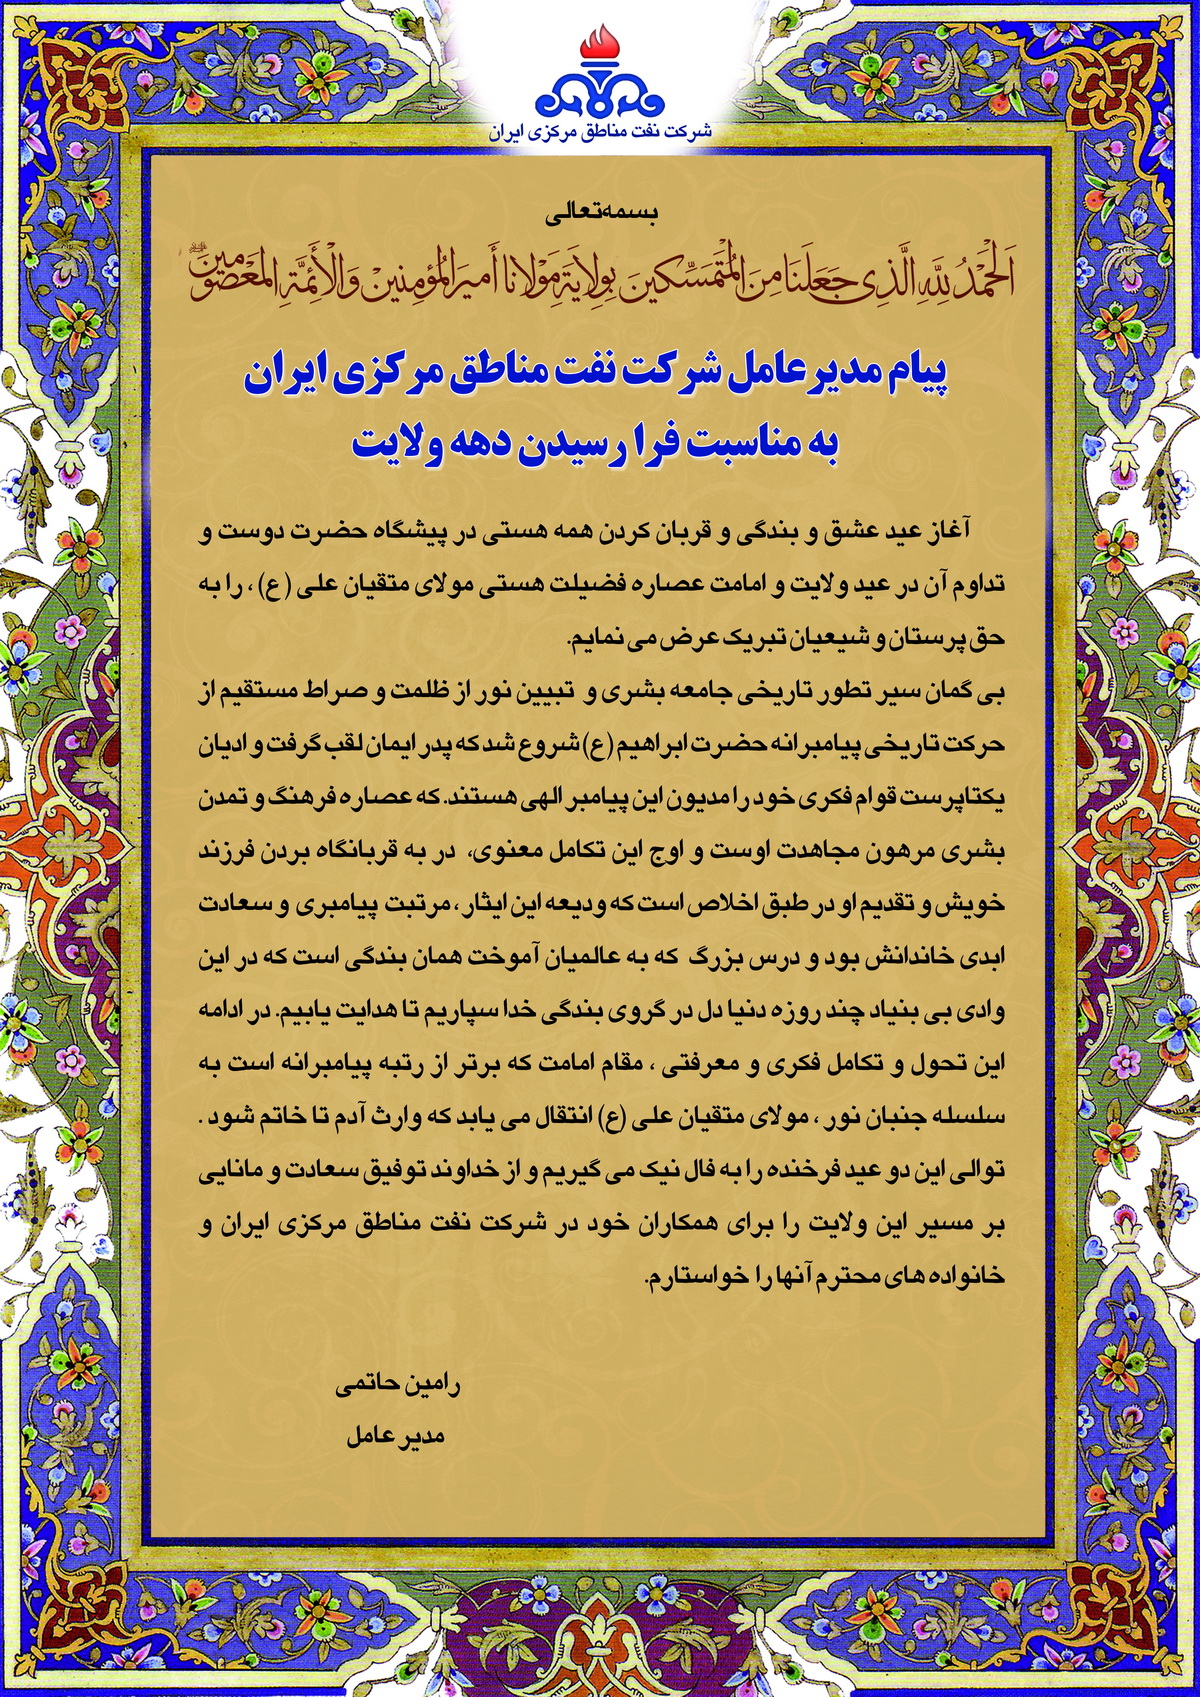 شرکت نفت مناطق مرکزی ایران
بسمه‌تعالی
اَلْحَمْدُ لِلّهِ الَّذِی جَعَلَنَا مِنَ الْمُتَمَسِّکینَ بِوِلایَةِ مَوْلانا أَمیرِ الْمُؤمِنینْ وَالْأَئِمَّةِ الْمَعْصُومین
پیام مدیرعامل شرکت نفت مناطق مرکزی ایران
به مناسبت فرا رسیدن دهه ولایت
آغاز عید عشق و بندگی و قربان کردن همه هستی در پیشگاه حضرت دوست و
تداوم آن در عید ولایت و امامت عصاره فضیلت هستی مولای متقیان علی (ع) ، را به
حق پرستان و شیعیان تبریک عرض می نمایم.
بی گمان سیر تطور تاریخی جامعه بشری و تبیین نور از ظلمت و صراط مستقیم از
حرکت تاریخی پیامبرانه حضرت ابراهیم (ع) شروع شد که پدر ایمان لقب گرفت و ادیان
یکتاپرست قوام فکری خود را مدیون این پیامبر الهی هستند. که عصاره فرهنگ و تمدن
بشری مرهون مجاهدت اوست و اوج این تکامل معنوی، در به قربانگاه بردن فرزند
خویش و تقدیم او در طبق اخلاص است که ودیعه این ایثار ، مرتبت پیامبری و سعادت
ابدی خاندانش بود و درس بزرگ که به عالمیان آموخت همان بندگی است که در این
وادی بی بنیاد چند روزه دنیا دل در گروی بندگی خدا سپاریم تا هدایت یابیم. در ادامه
این تحول و تکامل فکری و معرفتی ، مقام امامت که برتر از رتبه پیامبرانه است به
سلسله جنبان نور ، مولای متقیان علی (ع) انتقال می یابد که وارث آدم تا خاتم شود .
توالی این دو عید فرخنده را به فال نیک می گیریم و از خداوند توفیق سعادت و مانایی
بر مسیر این ولایت را برای همکاران خود در شرکت نفت مناطق مرکزی ایران و
خانواده های محترم آنها را خواستارم.
رامین حاتمی
مدیر عامل